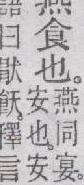 燕食也。燕同宴
安也。安
語曰猒飫。釋言